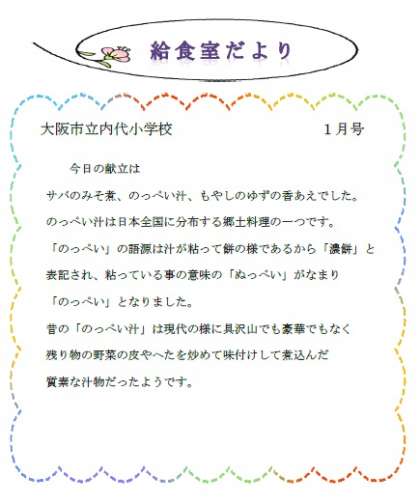 給食室だより
大阪市立内代小学校 1月号
今日の献立は
サバのみそ煮、のっぺい汁、もやしのゆずの香あえでした。
のっぺい汁は日本全国に分布する郷土料理の一つです。
「のっぺい」の語源は汁が粘って餅の様であるから「濃餅」と
表記され、粘っている事の意味の「ぬっぺい」がなまり
「のっぺい」となりました。
昔の「のっぺい汁」は現代の様に具沢山でも豪華でもなく
残り物の野菜の皮やへたを炒めて味付けして煮込んだ
質素な汁物だったようです。